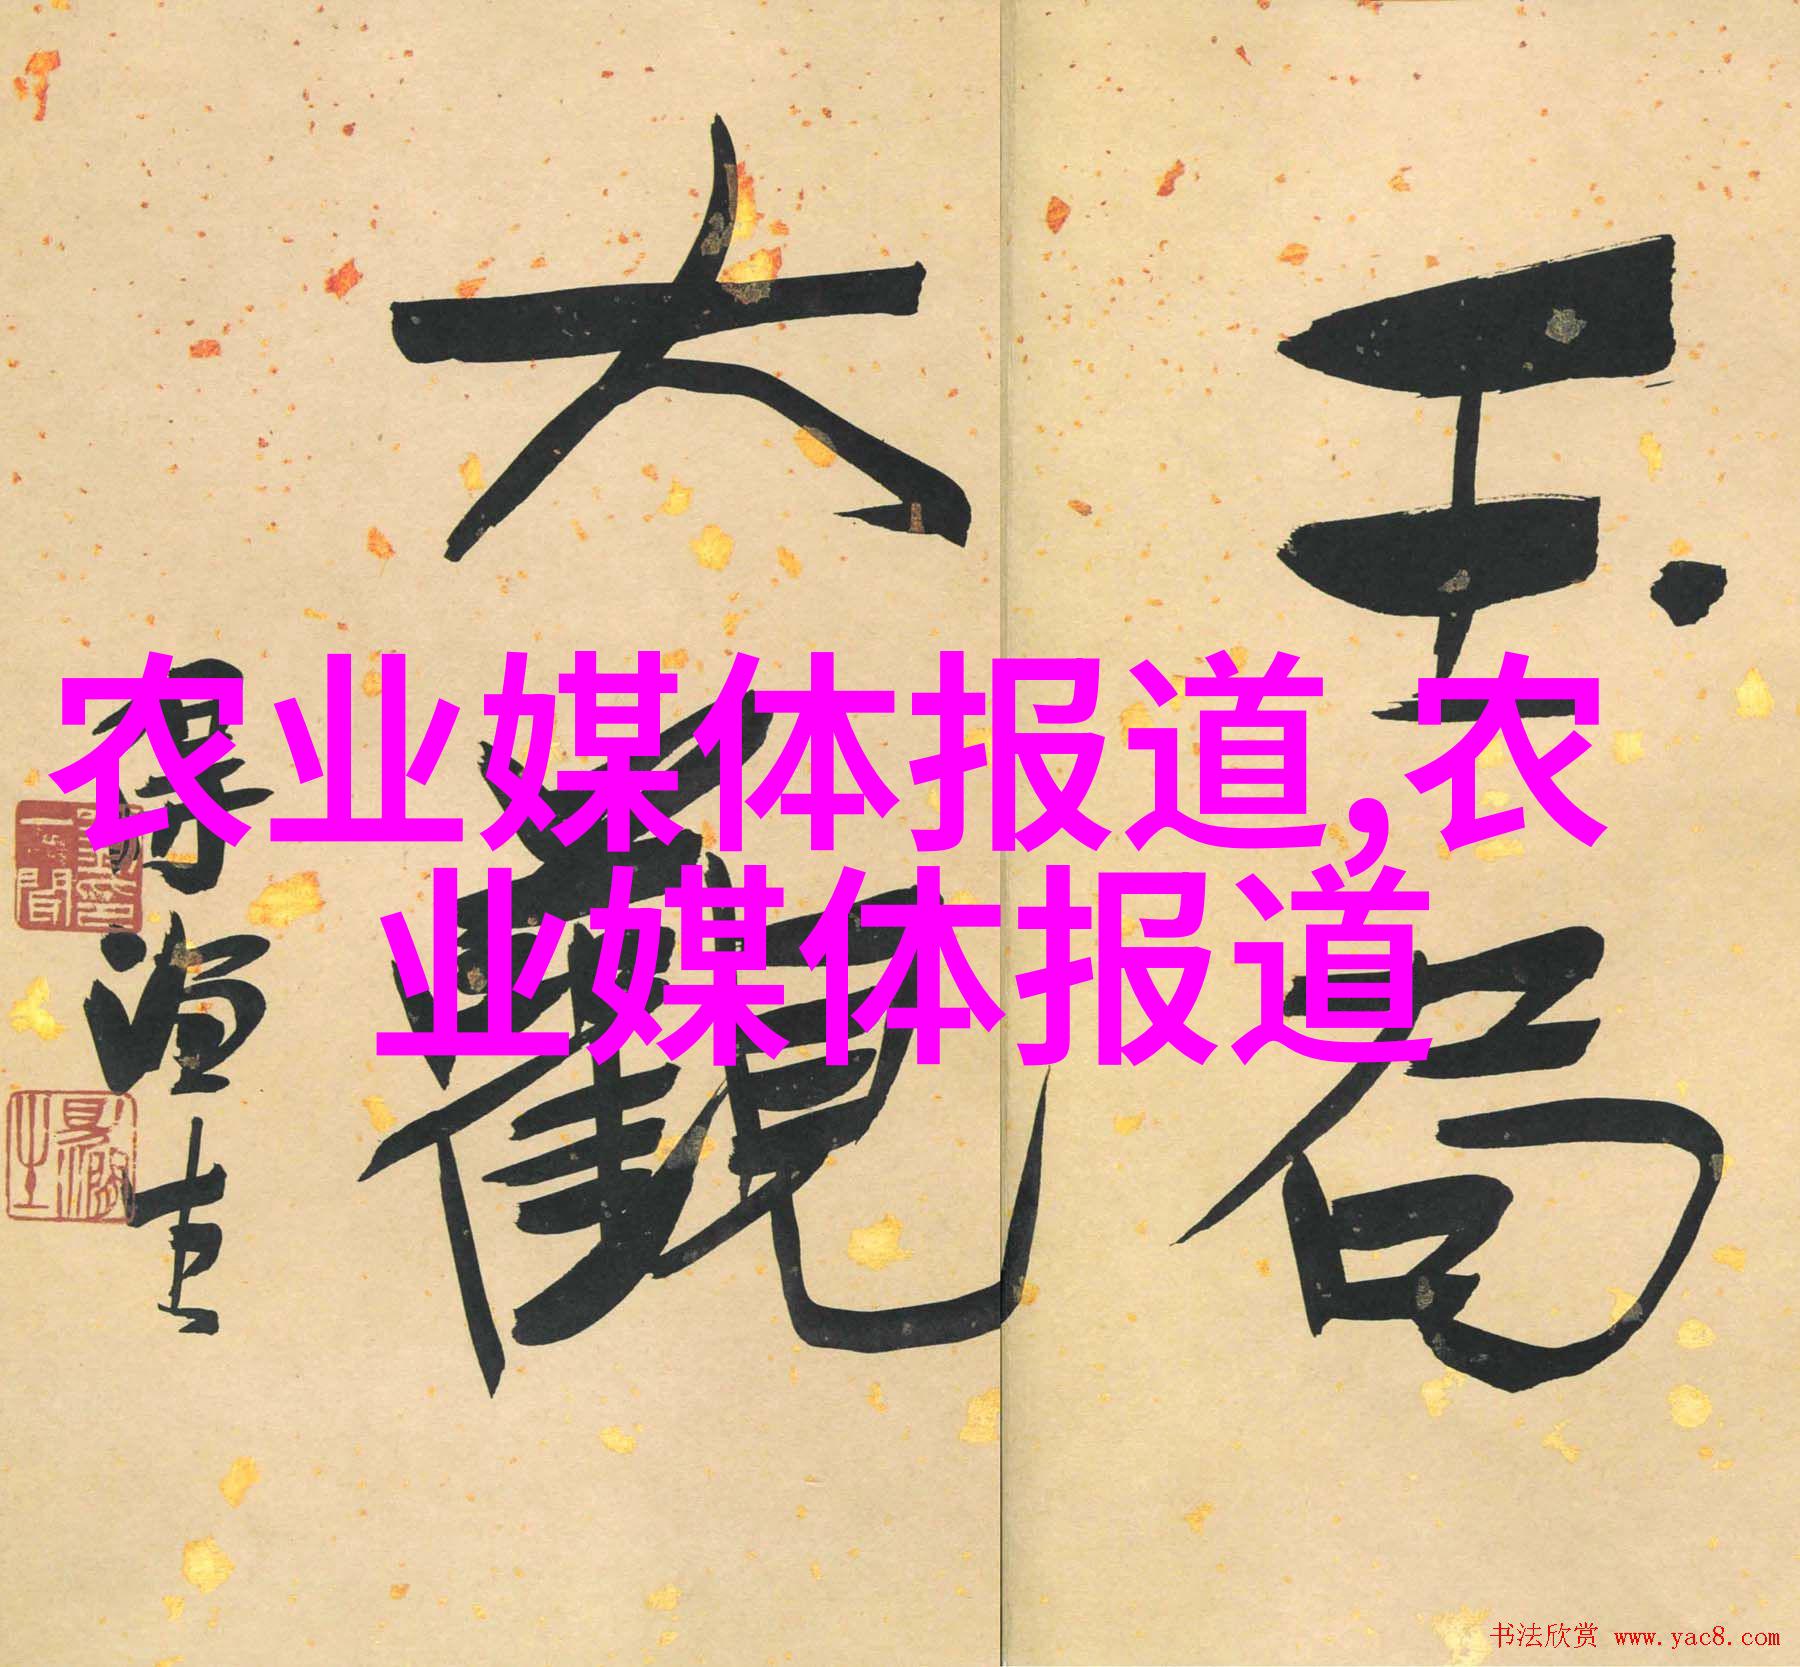 玉局
大觀
农业媒体报道,农
业媒体报道
书法欣赏 www.yac8.com